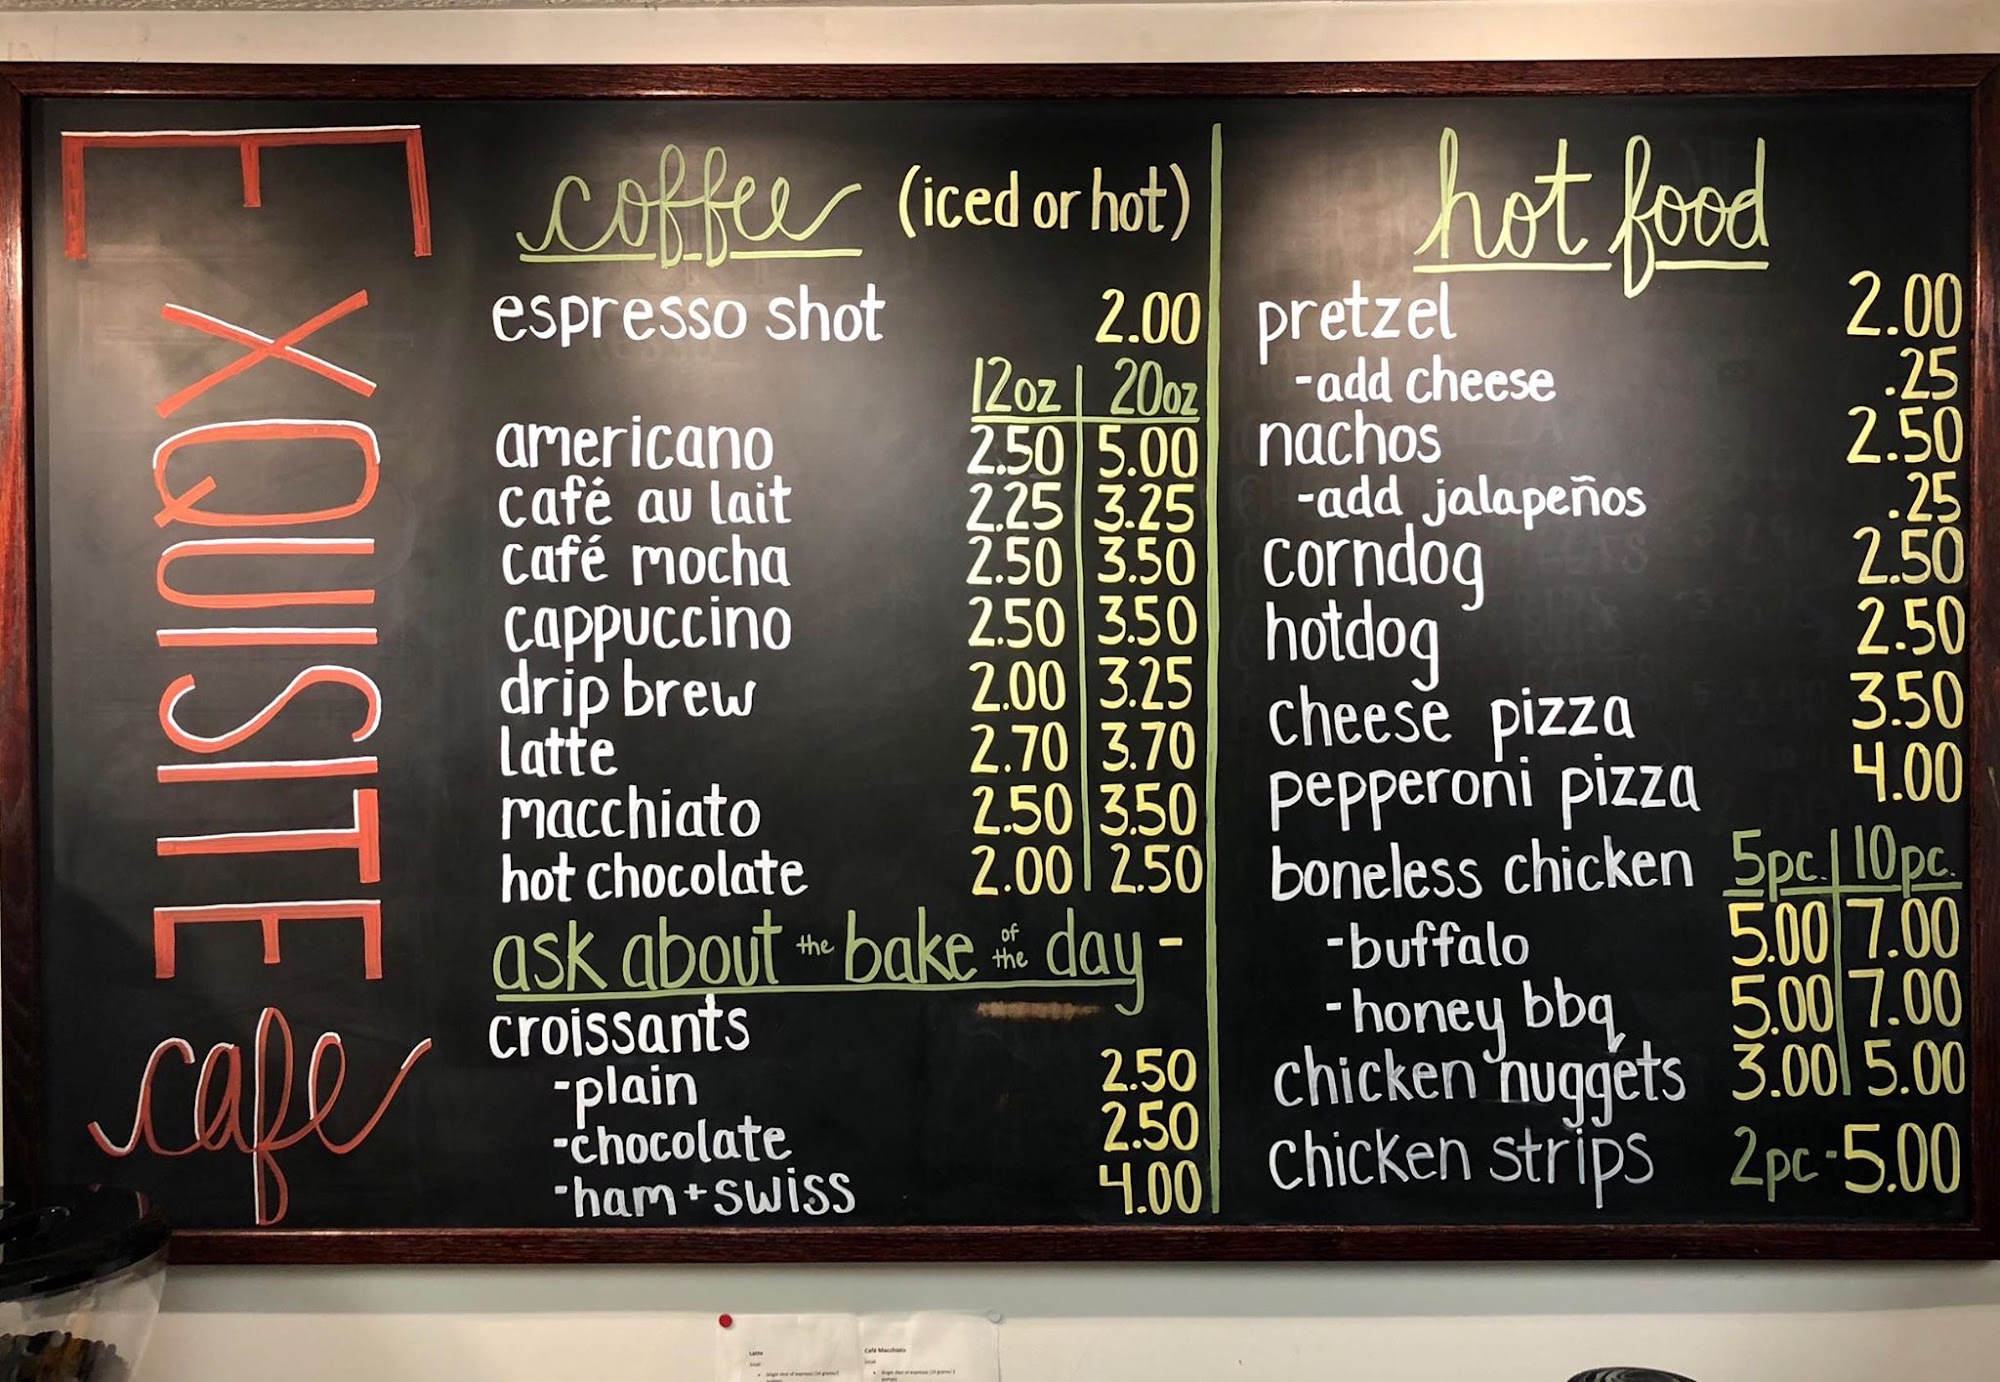 EXQUISITE
cafe
coffee (iced or hot)
espresso shot 2.00
12oz 20oz
americano 2.50 5.00
café au lait 2.25 3.25
café mocha 2.50 3.50
cappuccino 2.50 3.50
drip brew 2.00 3.25
latte 2.70 3.70
macchiato 2.50 3.50
hot chocolate 2.00 2.50
ask about the bake of the day -
croissants
-plain 2.50
-chocolate 2.50
-ham + swiss 4.00
hot food
pretzel 2.00
-add cheese .25
nachos 2.50
-add jalapeños .25
corndog 2.50
hotdog 2.50
cheese pizza 3.50
pepperoni pizza 4.00
boneless chicken 5pc. 10pc.
-buffalo 5.00 7.00
-honey bbq 5.00 7.00
chicken nuggets 3.00 5.00
chicken strips 2pc - 5.00
Latte
Small
Café Macchiato
Small